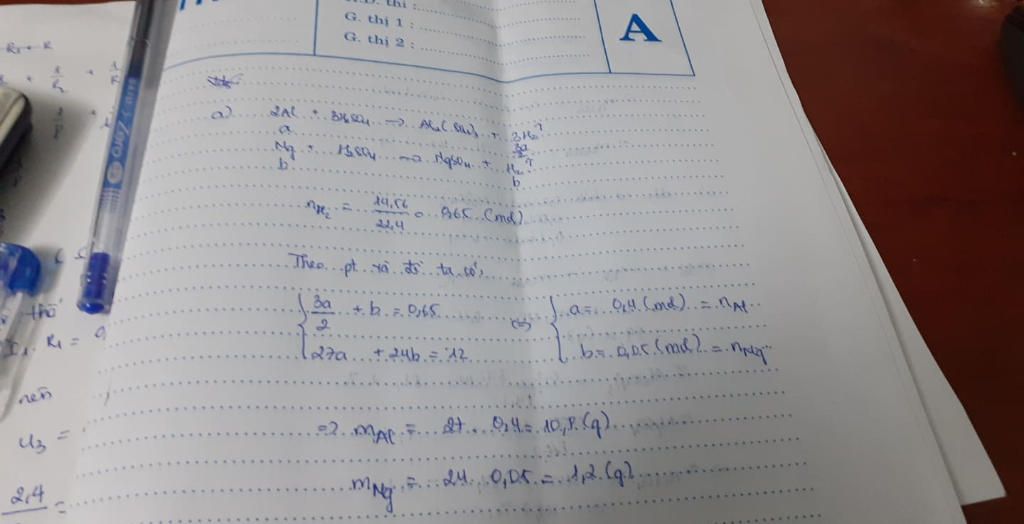 G. thị 1 :
G. thị 2 :
A
a) 2Al + 3H₂SO₄ → Al₂(SO₄)₃ + 3H₂↑
a 3a/2
Mg + H₂SO₄ → MgSO₄ + H₂↑
b b
nH₂ = 14,56/22,4 = 0,65 (mol)
Theo pt và đề ta có,
{ 3a/2 + b = 0,65 <=> { a = 0,4 (mol) = nAl
27a + 24b = 12 b = 0,05 (mol) = nMg
=> mAl = 27 . 0,4 = 10,8 (g)
mMg = 24 . 0,05 = 1,2 (g)
R₁ =
nên
U₃ =
2,4 =